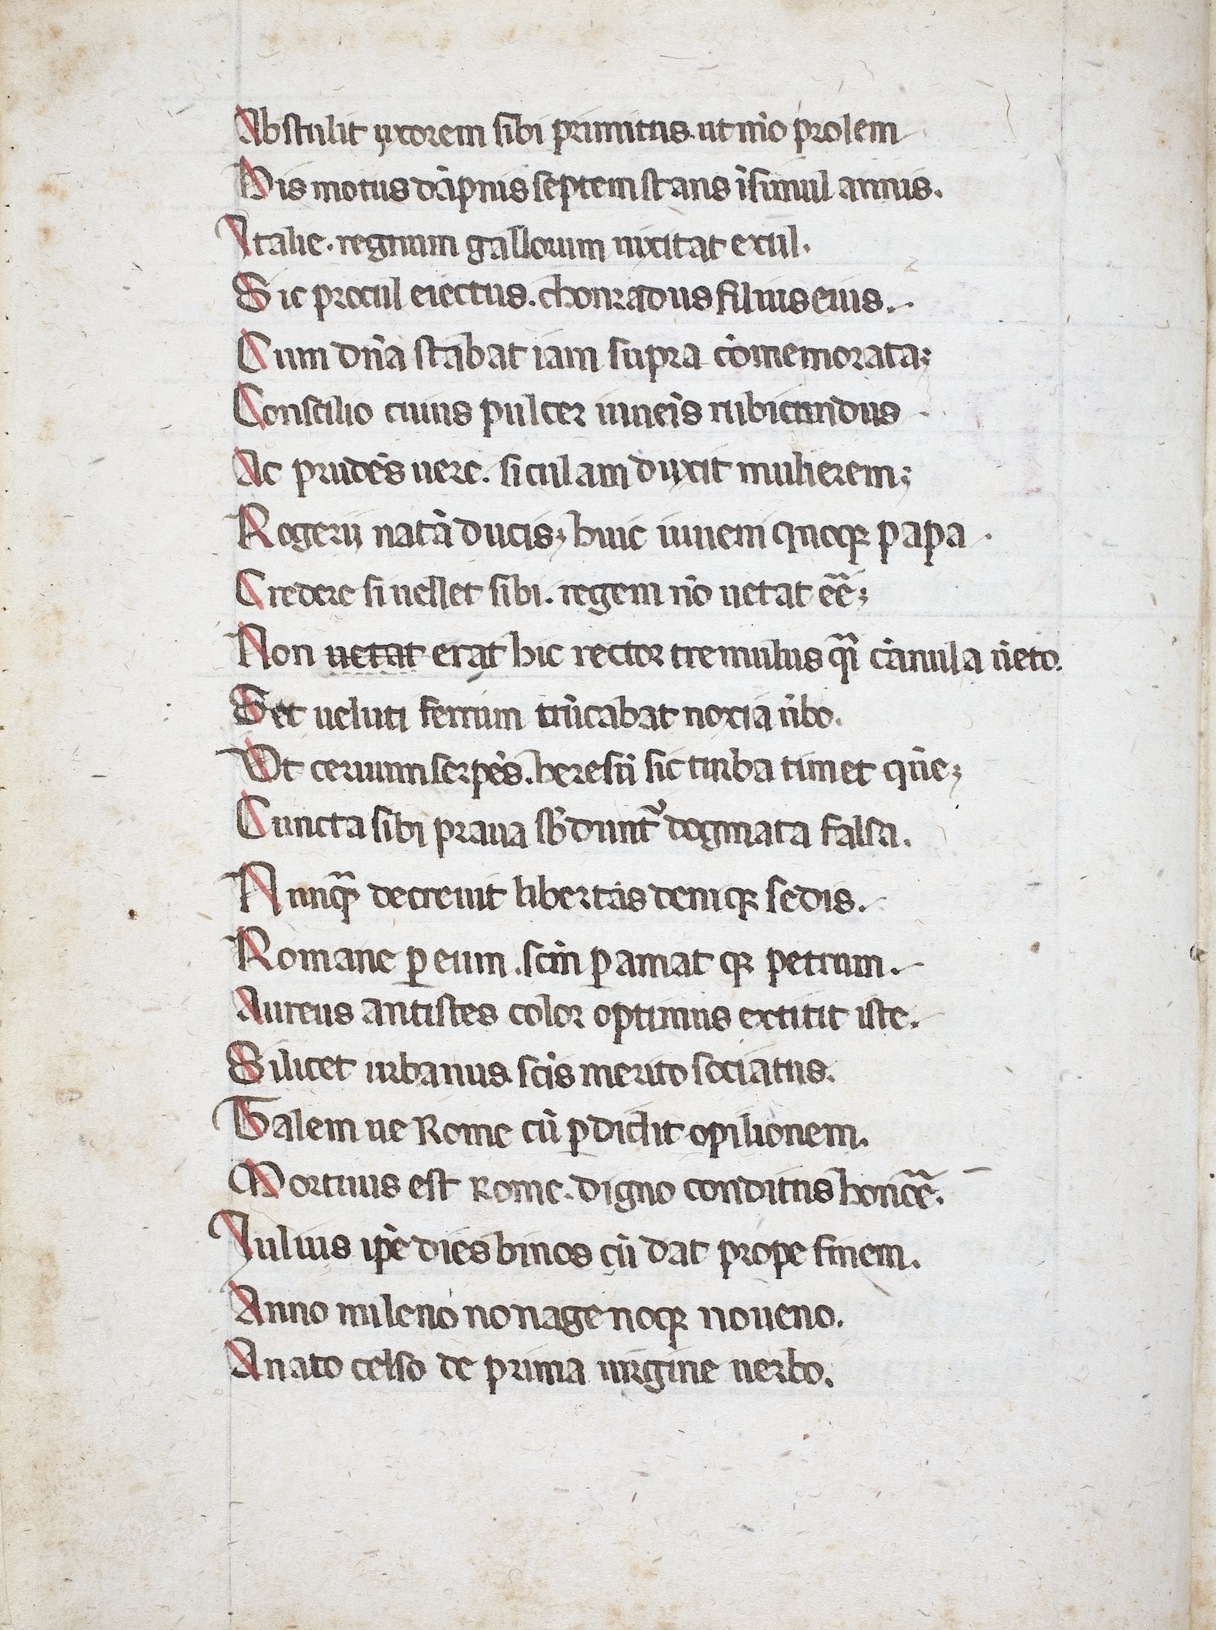 Abstulit uxorem sibi primitus. ut mo̅ prolem
His motus da̅pnis septem stans i̅simul annis.
Italie. regnum gallorum uixitat exul.
Sic procul eiectus. chonradus filius eius.
Cum dn̅a stabat iam supra co̅memorata;
Consilio cuius pulcer iuueīs rubicundus
Ac prude̅s uere. siculam duxit mulierem;
Rogerii nata̅ ducis; huic iuuem quoqꝫ papa.
Credere si uellet sibi. regem no̅ uetat ee̅;
Non uetat erat hic rector tremulus qua̅ ca̅nula ue̅to.
Set ueluti ferrum tru̅cabat noxia u̅bo.
Vt ceruum serpe̅s. heresu̅ sic turba timet que̅;
Cuncta sibi praua sb̅dunt᷑ dogmata falsa.
Nunqua̅ decreuit libertas deniqꝫ sedis.
Romane ꝑ eum. scm̅ ꝑamat qꝫ petrum.
Aureus antistes color optimus extitit iste.
Silicet urbanus sci̅s merito sociatus.
Talem ue Rome cu̅ ꝑdidit opilionem.
Mortuus est Rome. digno conditus honoe̅.
Iulius ipe̅ dies binos cu̅ dat prope finem.
Anno mileno nonagenoqꝫ noueno.
A nato celso de prima uirgine uerbo.